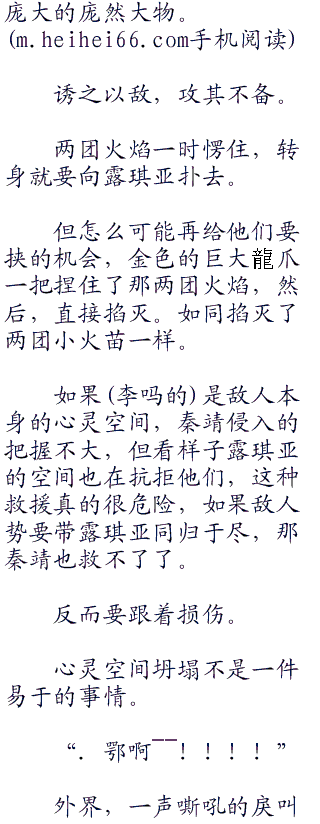 庞大的庞然大物。
(m.heihei66.com手机阅读)
诱之以敌，攻其不备。
两团火焰一时愣住，转
身就要向露琪亚扑去。
但怎么可能再给他们要
挟的机会，金色的巨大龍爪
一把捏住了那两团火焰，然
后，直接掐灭。如同掐灭了
两团小火苗一样。
如果(李吗的)是敌人本
身的心灵空间，秦靖侵入的
把握不大，但看样子露琪亚
的空间也在抗拒他们，这种
救援真的很危险，如果敌人
势要带露琪亚同归于尽，那
秦靖也救不了了。
反而要跟着损伤。
心灵空间坍塌不是一件
易于的事情。
“．鄂啊――！！！！”
外界，一声嘶吼的戾叫